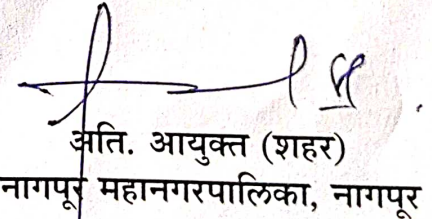 अति. आयुक्त (शहर)
नागपूर महानगरपालिका, नागपूर